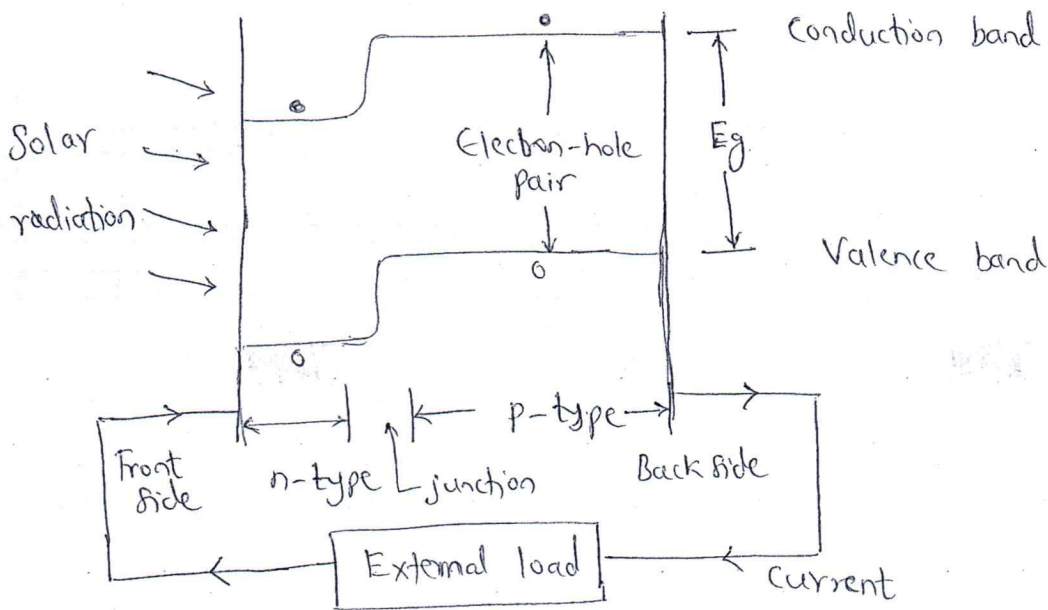 Conduction band
Solar
radiation
Electron-hole
pair
Eg
Valence band
Front
side
n-type
junction
p-type
Back side
External load
Current